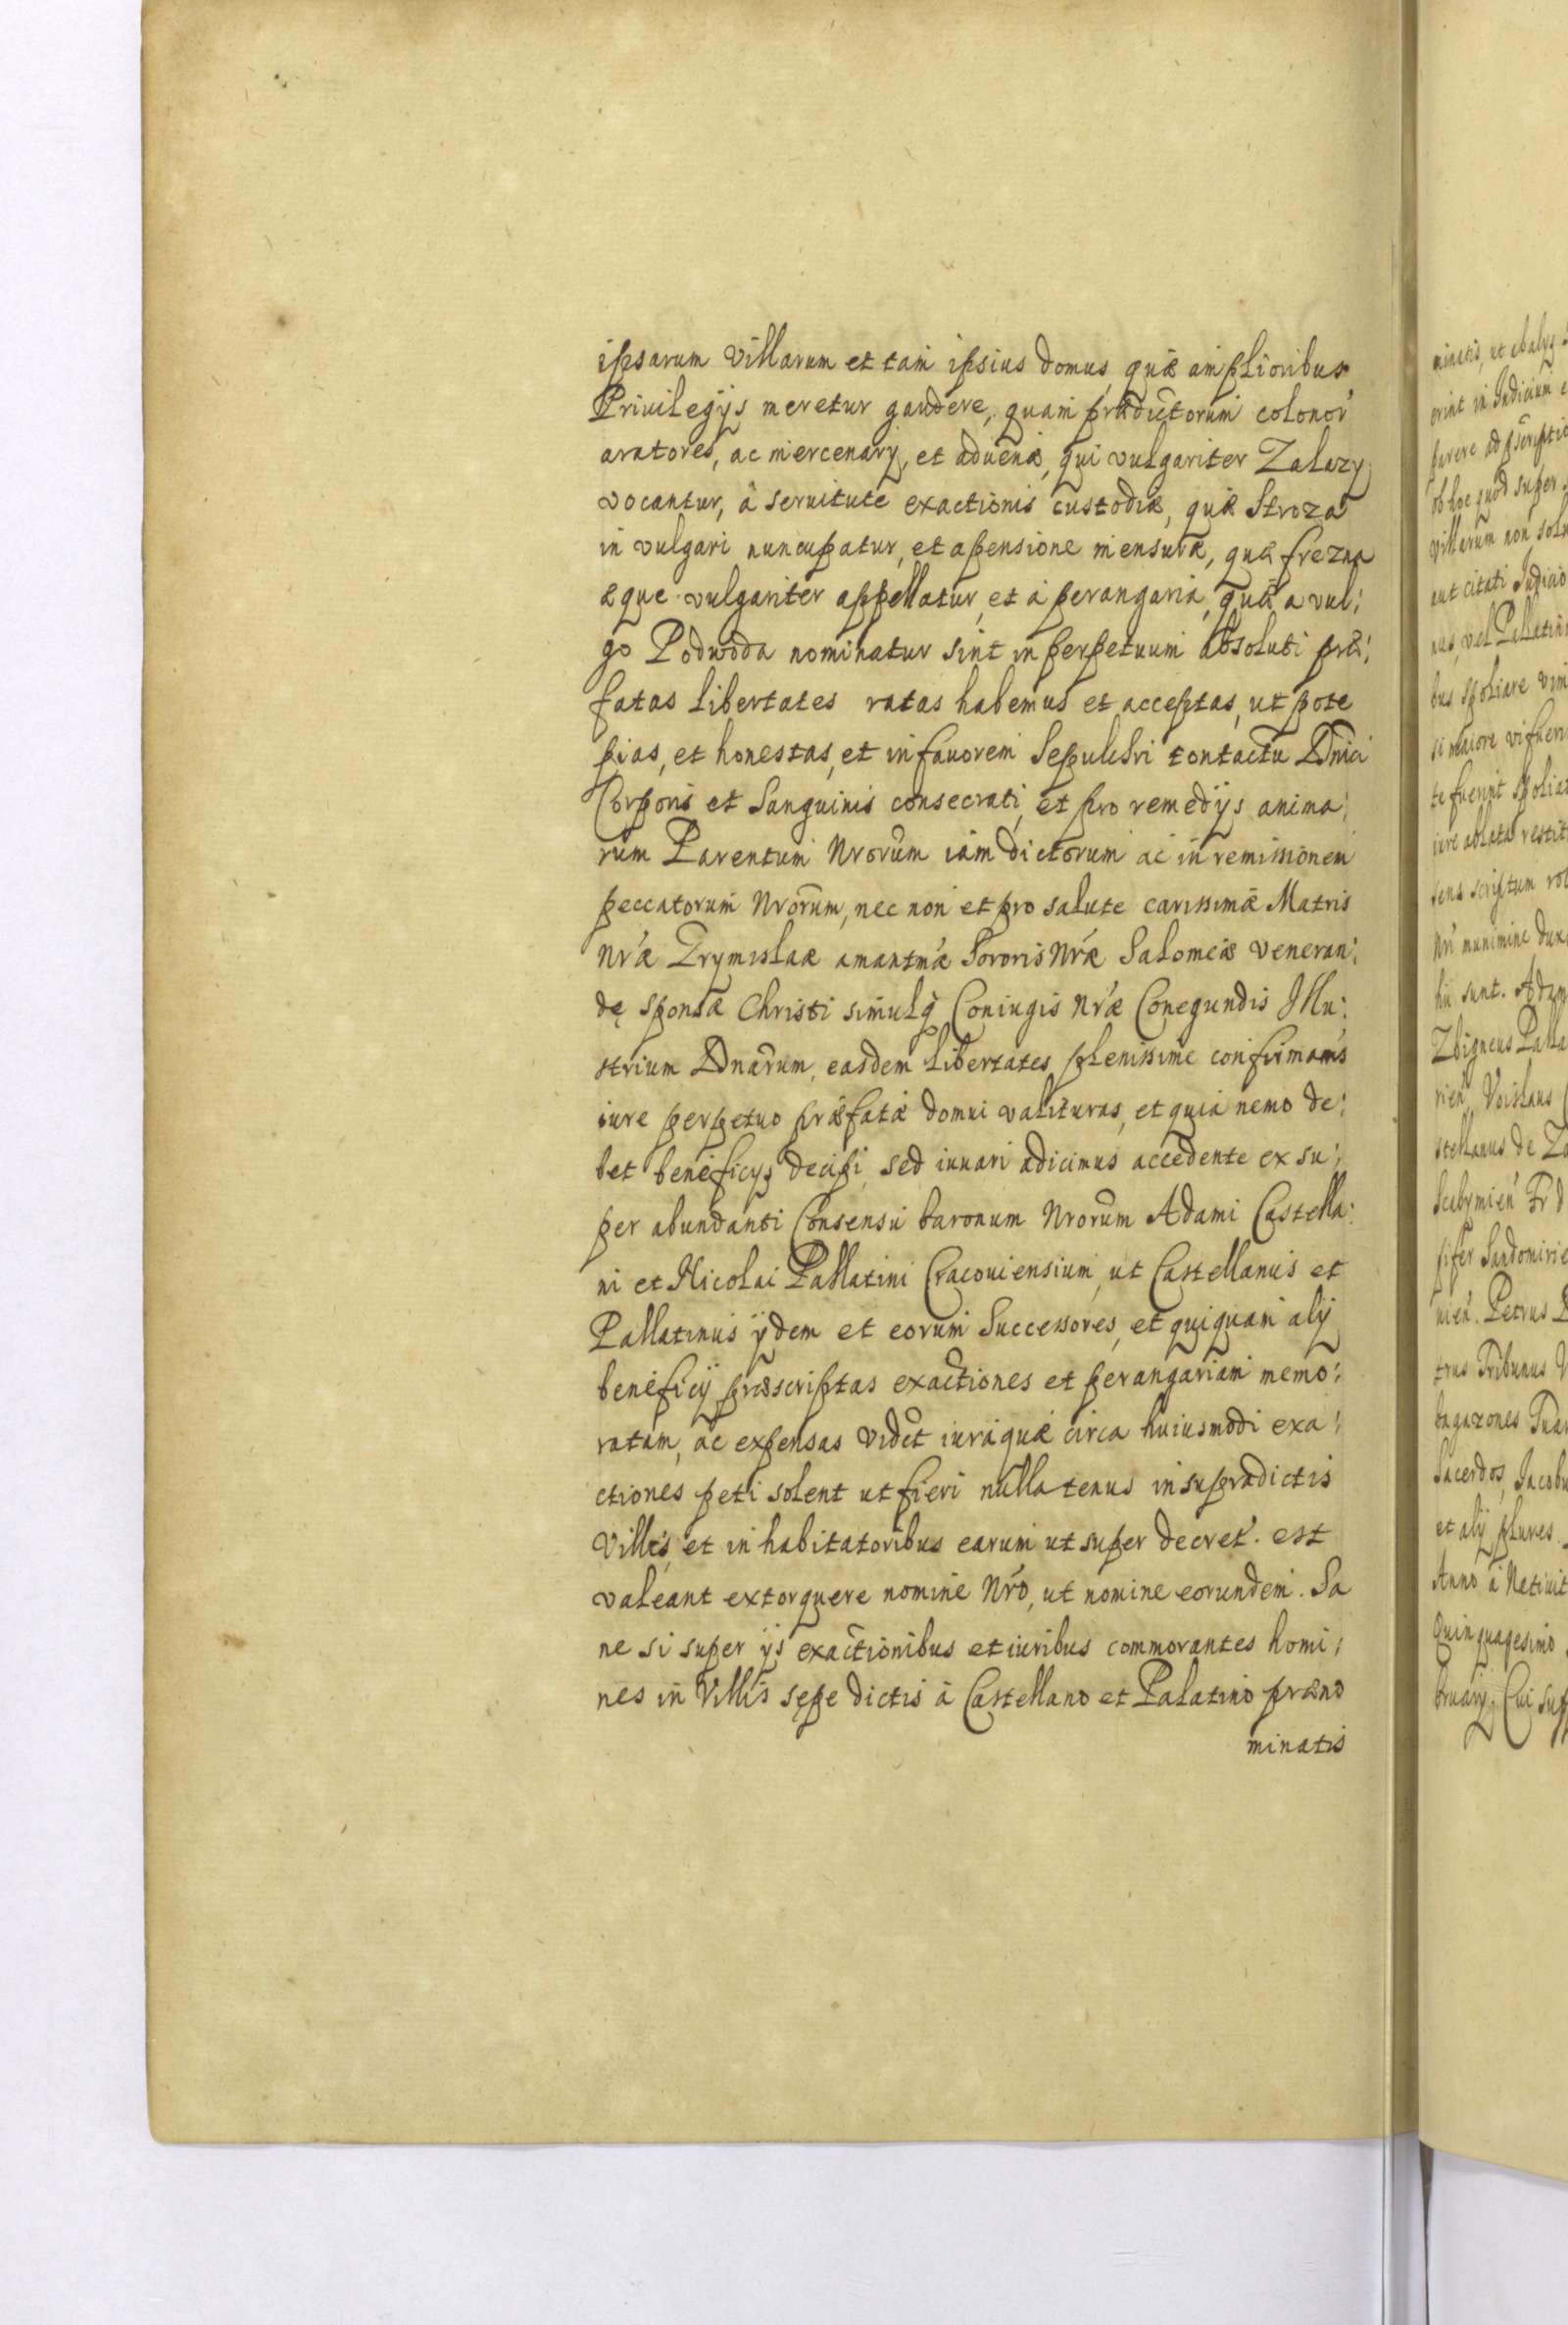 ipsarum Villarum et tam ipsius domus, quæ amplioribus
Priuilegijs meretur gaudere, quam prædictorum colonor'
aratores, ac mercenarij, et aduenæ, qui vulgariter Zalazy
vocantur, à seruitute exactionis custodiæ, quæ Stroza
in vulgari nuncupatur, et a pensione mensuræ, quæ frezna
æque vulgariter appellatur, et à perangaria, quæ a vul:
go Podwoda nominatur sint in perpetuum absoluti præ:
fatas libertates ratas habemus et acceptas, ut pote
pias, et honestas, et in fauorem Sepulchri contactu Dnici
Corporis et Sanguinis consecrati, et pro remedijs anima:
rum Parentum Nrorum iam dictorum ac in remissionem
peccatorum Nrorum, nec non et pro salute carissimæ Matris
Nr'æ Grzymislaæ amantmæ Sororis Nr'æ Salomeæ veneran:
dę sponsæ Christi simulq̀ Coniugis nr'æ Conegundis Illu:
strium Dnarum, easdem libertates plenissime confirmam's
iure perpetuo præfatæ domui valituras, et quia nemo de:
bet beneficijs decipi, sed iuuari adicimus accedente ex su:
per abundanti Consensu baronum Nrorum Adami Castella:
ni et Nicolai Pallatini Cracouiensium, ut Castellanus et
Pallatinus ijdem et eorum Successores, et quiquam alij
beneficij præscriptas exactiones et perangariam memo:
ratam, ac expensas vidct iuraquæ circa huiusmodi exa:
ctiones peti solent ut fieri nullatenus in supradictis
Villis, et in habitatoribus earum ut super decret'. est
valeant extorquere nomine Nr'o, ut nomine eorundem. Sa
ne si super ijs exactionibus et iuribus commorantes homi:
nes in Villis sępe dictis à Castellano et Palatino præno
minatis
minatis, ut
orint in Judicium
parere
ob hoc quod super
Villarum non
aut citati Judicio
nus, vel
bus spoliare
si maiore vi
te fuerint
iure ablata
sens scriptum
Nri munimine
hii sunt.
Zbigneus
rien' Voislaus
stellanus de
Scibymien'
pifer
nien'. Petrus
trus Tribunus
bagazones
Sacerdos, Jacobu
et alij plures.
Anno à Natiuit
Quinquagesimo
bruarij. Cui